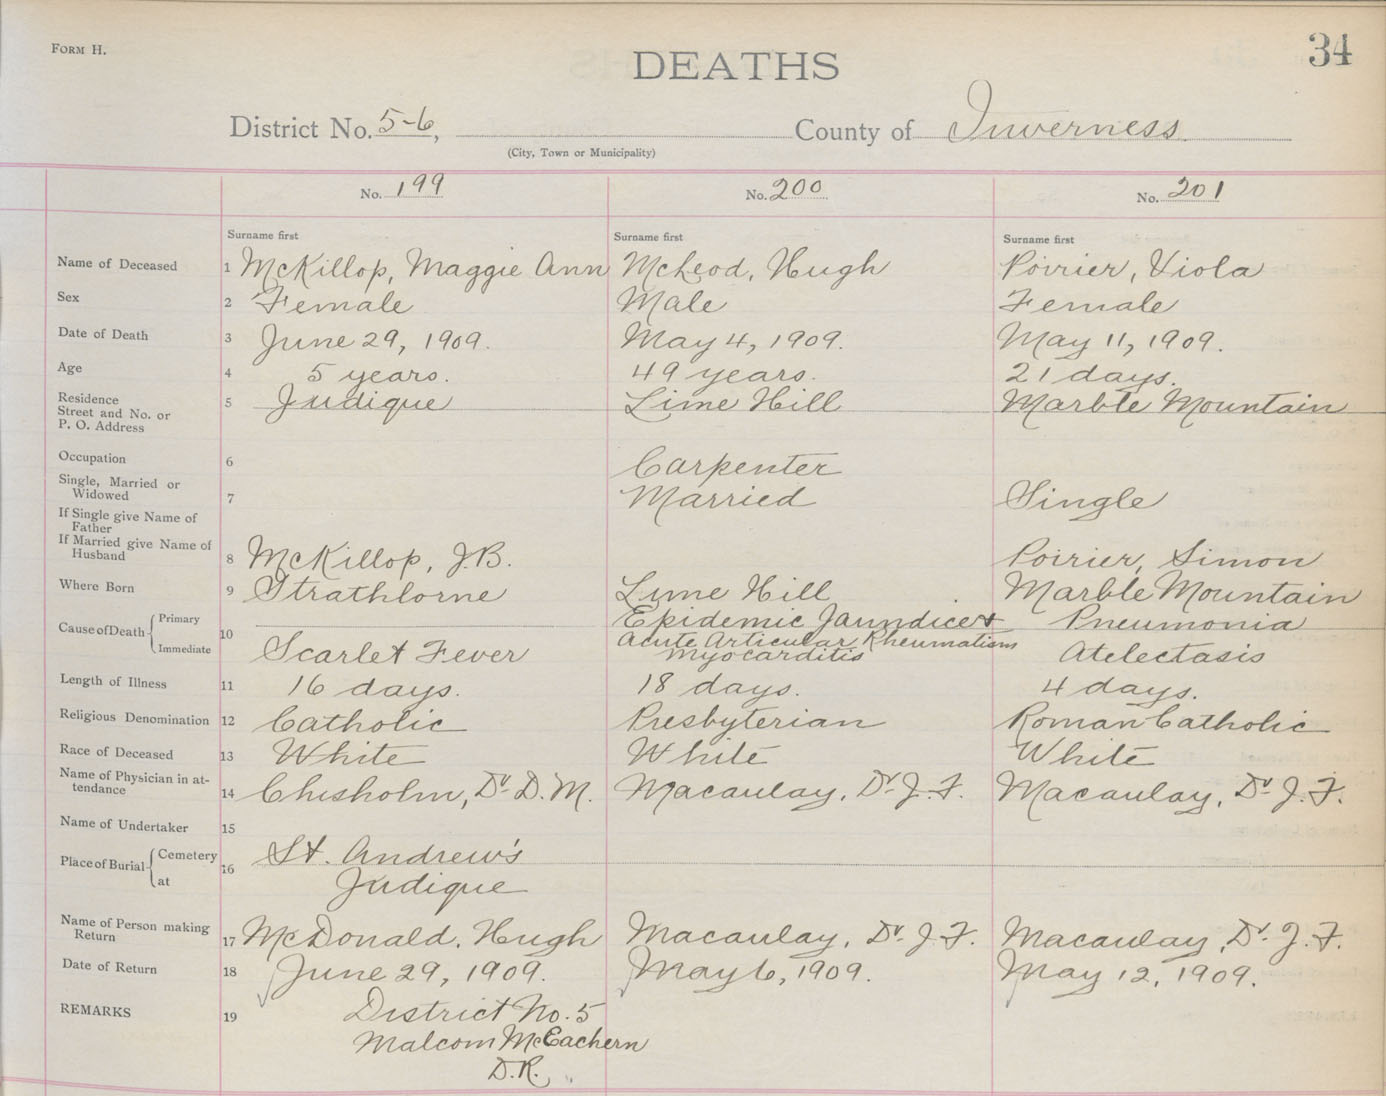 FORM H.
DEATHS
34
District No. 5-6, County of Inverness
(City, Town or Municipality)
No. 199 No. 200 No. 201
Surname first Surname first Surname first
Name of Deceased 1 McKillop, Maggie Ann McLeod, Hugh Poirier, Viola
Sex 2 Female Male Female
Date of Death 3 June 29, 1909. May 4, 1909. May 11, 1909.
Age 4 5 years. 49 years. 21 days.
Residence 5 Judique Lime Hill Marble Mountain
Street and No. or
P. O. Address
Occupation 6 Carpenter
Single, Married or
Widowed 7 Married Single
If Single give Name of
Father
If Married give Name of
Husband 8 McKillop, J.B. Poirier, Simon
Where Born 9 Strathlorne Lime Hill Marble Mountain
Cause of Death Primary 10 Epidemic Jaundice & Pneumonia
Acute Articular Rheumatism
Immediate Scarlet Fever Myocarditis Atelectasis
Length of Illness 11 16 days. 18 days. 4 days.
Religious Denomination 12 Catholic Presbyterian Roman Catholic
Race of Deceased 13 White White White
Name of Physician in at-
tendance 14 Chisholm, Dr. D.M. Macaulay, Dr. J.F. Macaulay, Dr. J.F.
Name of Undertaker 15
Place of Burial Cemetery 16 St. Andrew's
at Judique
Name of Person making
Return 17 McDonald, Hugh Macaulay, Dr. J.F. Macaulay, Dr. J.F.
Date of Return 18 June 29, 1909. May 6, 1909. May 12, 1909.
REMARKS 19 District No. 5
Malcom McEachern
D.R.